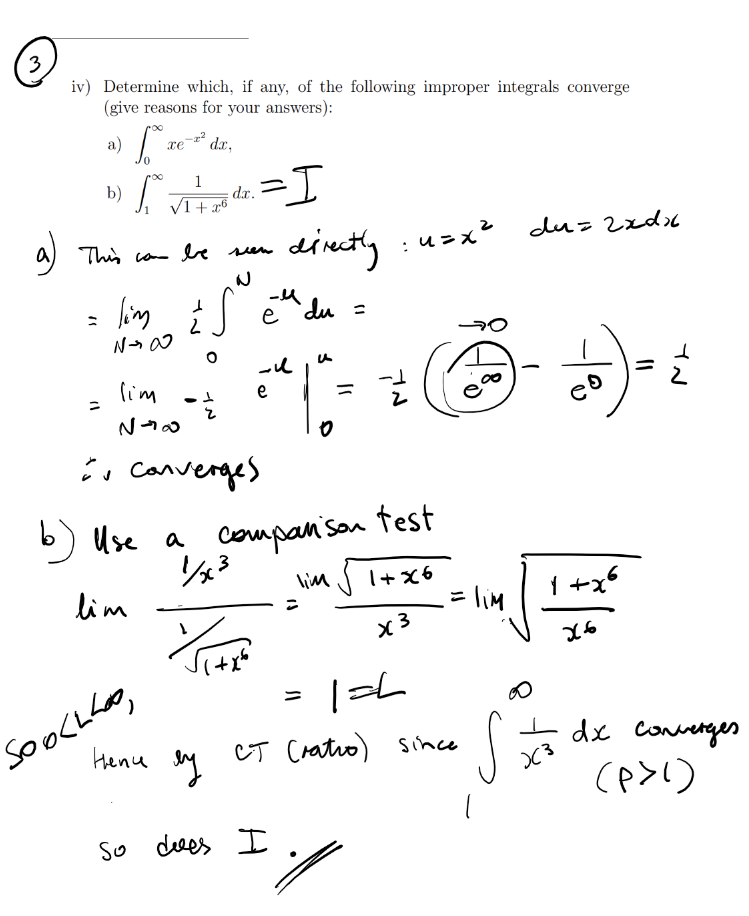 3
iv) Determine which, if any, of the following improper integrals converge
(give reasons for your answers):
a) ∫₀^∞ xe^{-x²} dx,
b) ∫₁^∞ 1/√(1+x⁶) dx. = I
a) This can be seen directly : u=x² du=2xdx
= lim_{N→∞} 1/2 ∫₀^N e^{-u} du =
= lim_{N→∞} -1/2 e^{-u} |₀^u = -1/2 ( 1/e^∞ →0 - 1/e^0 ) = 1/2
∴ converges
b) Use a comparison test
lim (1/x³)/(1/√(1+x⁶)) = lim √(1+x⁶)/x³ = lim √((1+x⁶)/x⁶)
= 1 = L
So 0<L<∞,
Hence by CT (ratio) since ∫₁^∞ 1/x³ dx converges
(P>1)
so does I.